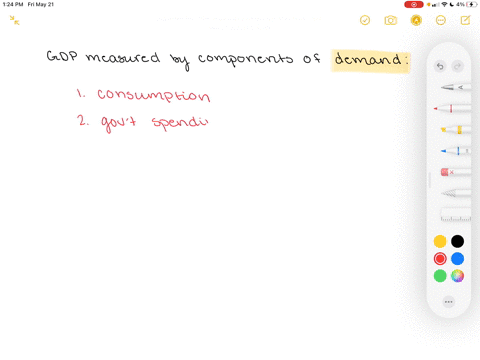 1:24 PM Fri May 21
4%
GDP measured by components of demand:
1. consumption
2. gov't spendi